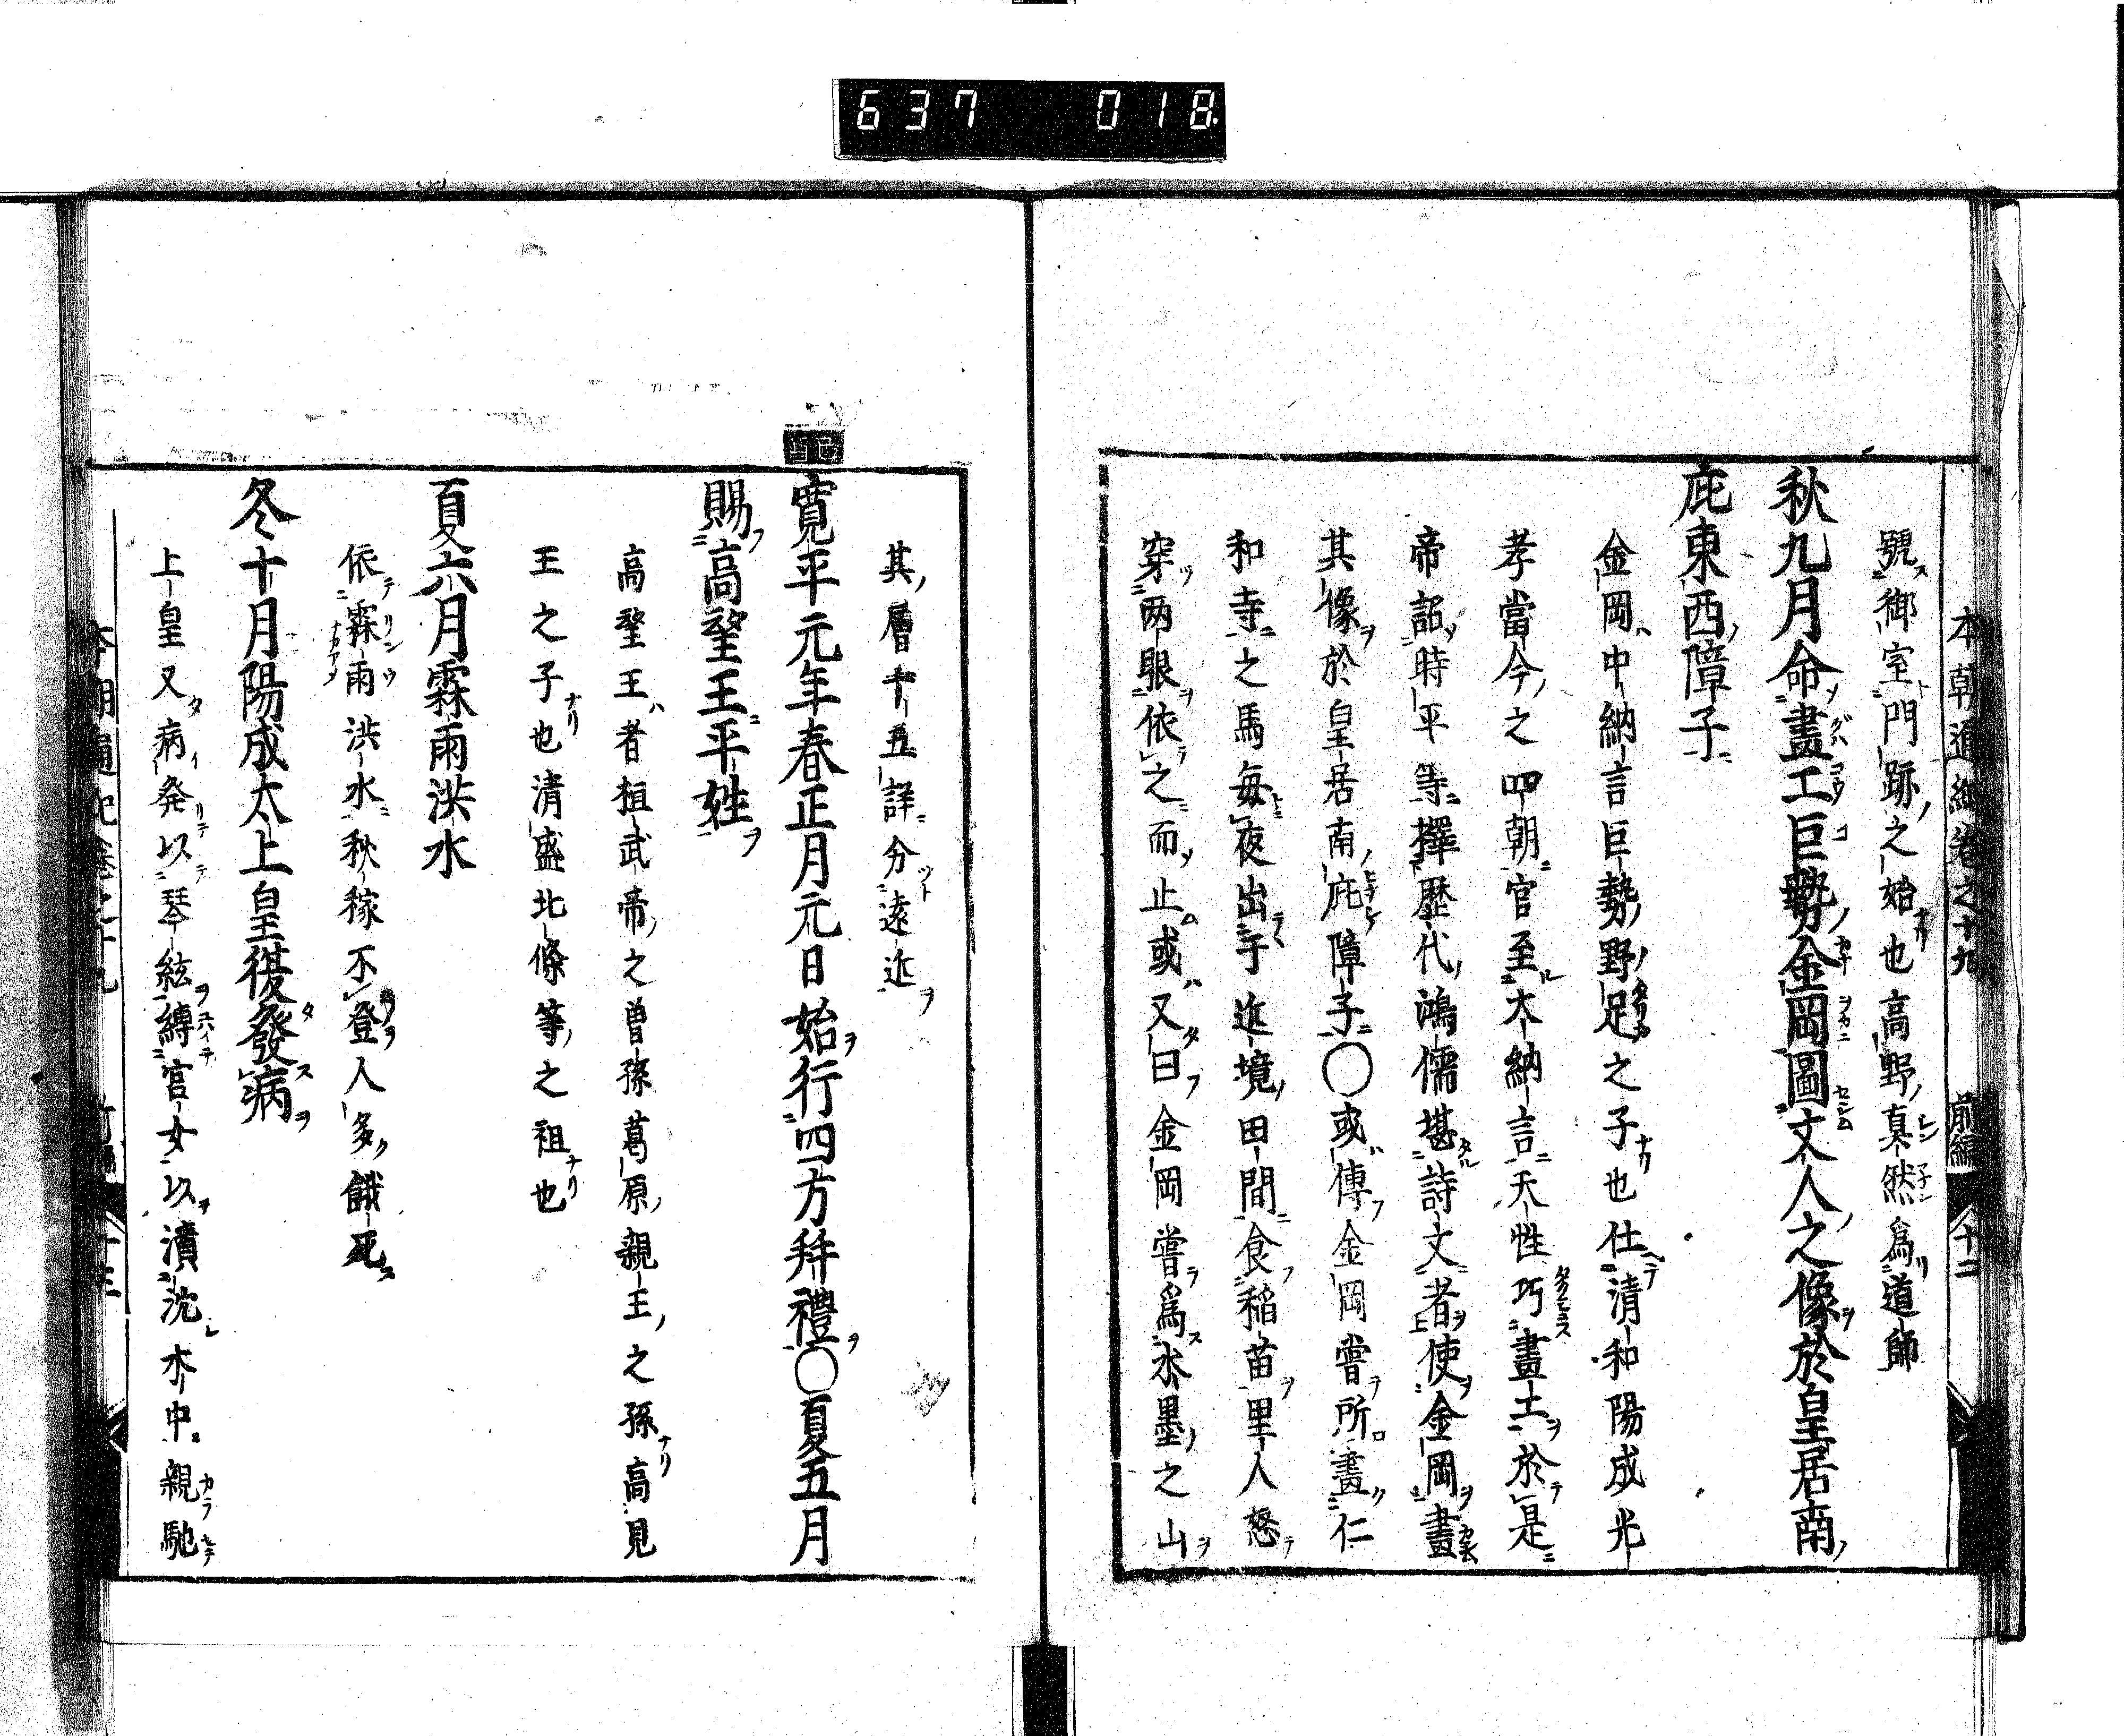 637 018.
本朝通紀卷之十九 前編 十二
號御室門跡之始也高野真然為道師
秋九月命畫工巨勢金岡圖文人之像於皇居南
庇東西障子
金岡中納言巨勢野足之子也仕清和陽成光
孝當今之四朝官至大納言天性巧畫土於是
帝詔時平等擇歷代鴻儒堪詩文者使金岡畫
其像於皇居南庇障子〇或傳金岡嘗所畫仁
和寺之馬每夜出于近境田間食稲苗里人怒
穿両眼依之而止或又曰金岡嘗為水墨之山
其層十五詳分遠近
己酉
寛平元年春正月元日始行四方拜禮〇夏五月
賜高望王平姓
高望王者桓武帝之曽孫葛原親王之孫高見
王之子也清盛北條等之祖也
夏六月霖雨洪水
依霖雨洪水秋稼不登人多餓死
冬十月陽成太上皇復發病
上皇又病発以琴絃縛官女以漬沈水中親馳
本朝通紀卷之十九 前編 十三